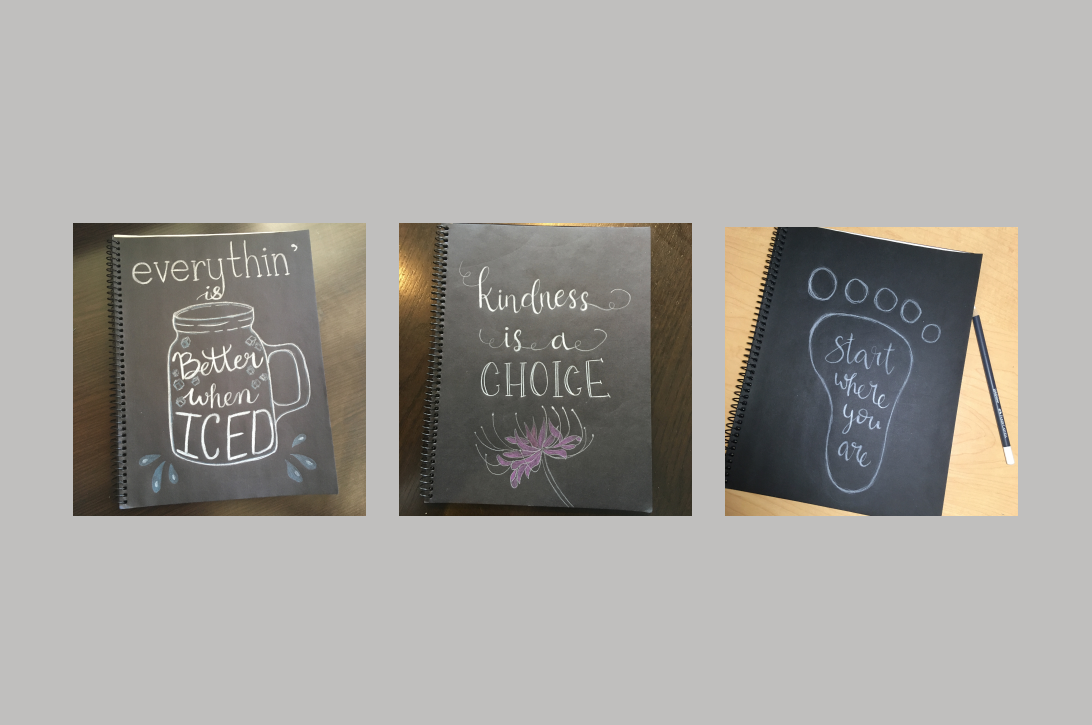 everythin'
is
Better
when
ICED
kindness
is a
CHOICE
start
where
you
are